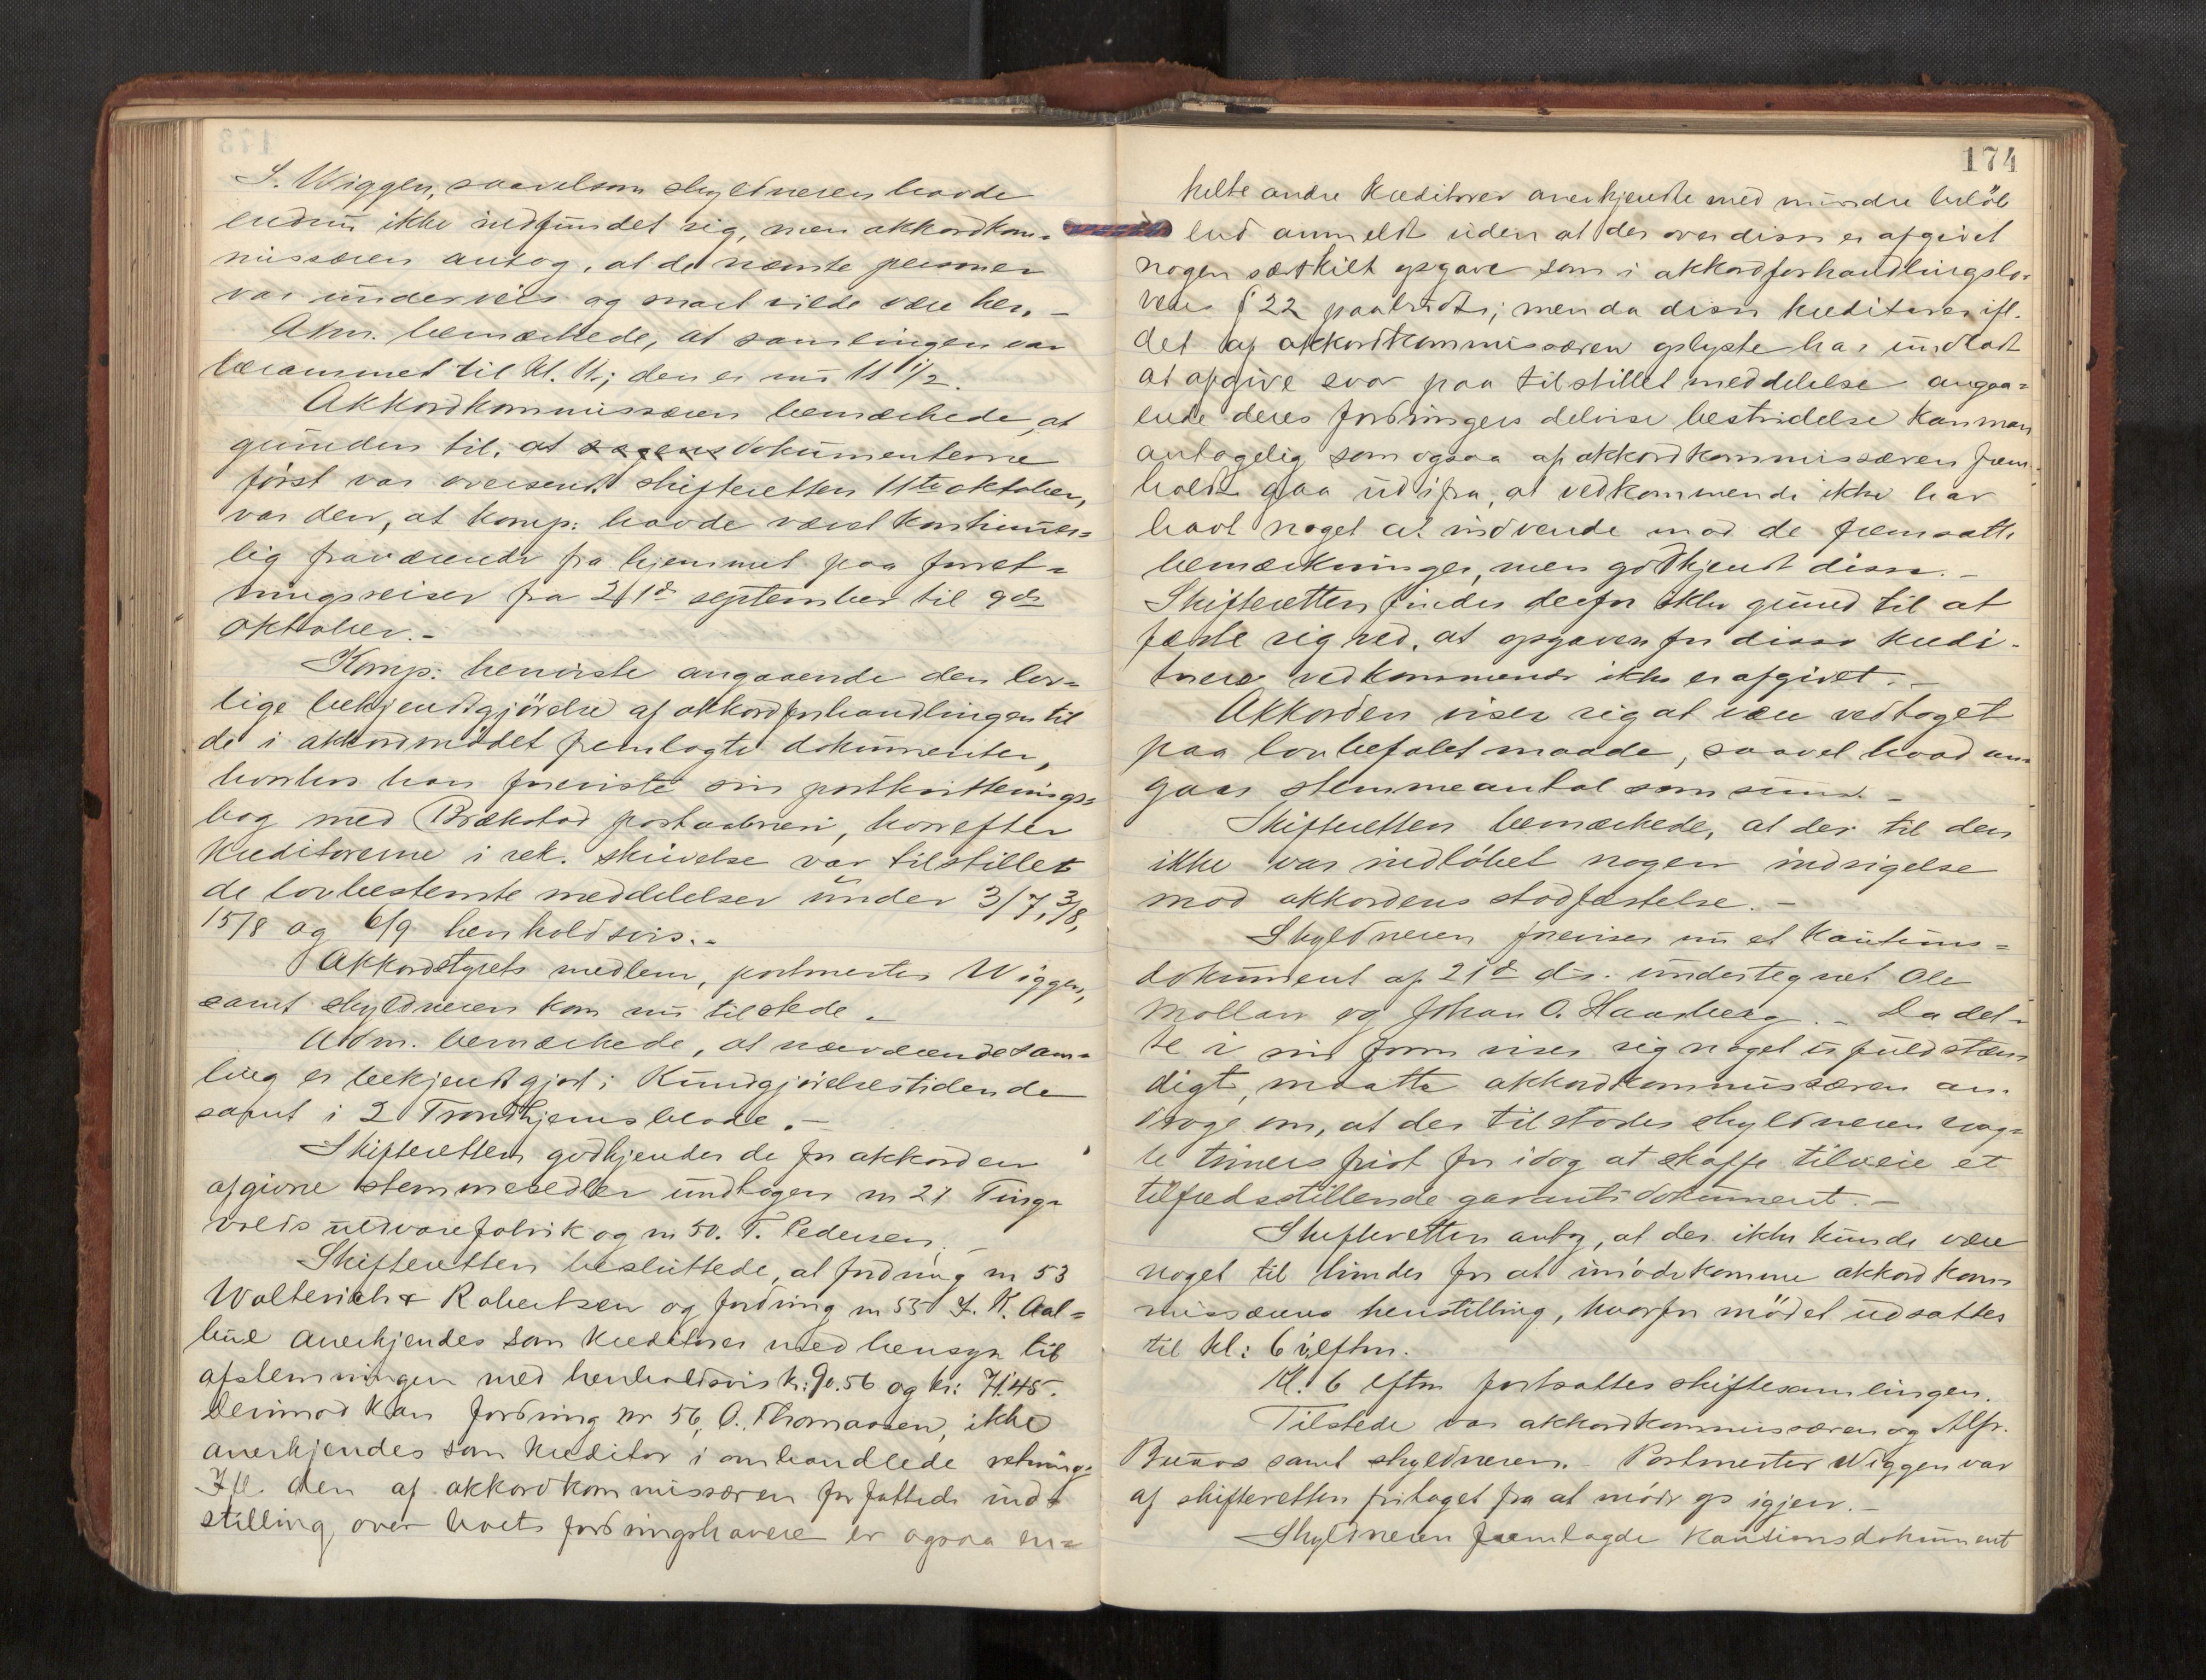 S. Wiggen, saavelsom skyldneren havde
endnu ikke indfundet sig, men akkordkom-
missæren antog, at de nævnte personer
var underveis og snart vilde være her. –
Adm. bemærkede, at samlingen var
berammet til kl. 11; den er nu 11 1/2.
Akkordkommissæren bemærkede, at
grunden til, at sagens dokumenterne
först var oversendt skifteretten 11te oktober,
var den, at komp: havde været kontinuer-
lig fraværende fra hjemmet paa forret-
ningsreiser fra 21de september til 9de
oktober. –
Komp: henviste angaaende den lov-
lige bekjendtgjörelse af akkordforhandlingen til
de i akkordmödet fremlagte dokumenter,
hvorhos han foreviste sin postkvitterings-
bog med Brækstad postaabneri, hvorefter
kreditorerne i rek. skrivelse var tilstillet
de lovbestemte meddelelser under 3/7, 3/8,
15/8 og 6/9 henholdsvis. –
Akkordstyrets medlem, postmester Wiggen,
samt skyldneren kom nu tilstede. –
Adm. bemærkede, at nærværende sam-
ling er bekjendtgjort i Kundgjörelsestidende
samt i 2 Trondhjemsblade. –
Skifteretten godkjender de for akkorden
afgivne stemmesedler undtagen nr 21 Ting-
volds uldvarefabrik og nr 50. T. Pedersen. –
Skifteretten besluttede, at fordring nr 53
Wolterich & Robertsen og fordring nr 55 J. K. Aal-
bue anerkjendes som kreditorer med hensyn til
afstemningen med henholdsvis kr: 90.56 og kr: 71.45.
Derimod kan fordring nr 56, O. Thomassen, ikke
anerkjendes som kreditor i omhandlede retning.
Ifl. den af akkordkommissæren forfattede ind-
stilling over boets fordringshavere er ogsaa en-
174
kelte andre kreditorer anerkjendte med mindre belöb
end anmeldt uden at der over disse er afgivet
nogen særskilt opgave som i akkordforhandlingslo-
vens § 22 paabudt; men da disse kreditorer ifl.
det af akkordkommissæren oplyste har undladt
at afgive svar paa tilstillet meddelelse angaa-
ende deres fordringers delvise bestridelse kan man
antagelig som ogsaa af akkordkommissæren frem-
holdt gaa ud ifra, at vedkommende ikke har
havt noget at indvende mod de fremsatte
bemærkninger, men godkjendt disse. –
Skifteretten finder derfor ikke grund til at
fæste sig ved, at opgaven for disse kredi-
torers vedkommende ikke er afgivet. –
Akkorden viser sig at være vedtaget
paa lovbefalet maade, saavel hvad an-
gaar stemmeantal som sum. –
Skifteretten bemærkede, at der til den
ikke var indlöbet nogen indsigelse
mod akkordens stadfæstelse. –
Skyldneren foreviser nu et kautions-
dokument af 21de ds. undertegnet Ole
Mollan og Johan O. Haarberg. – Da det-
te i sin form viser sig noget ufuldstæn-
digt, maatte akkordkommissæren an-
drage om, at der tilstodes skyldneren nog-
le timers frist for idag at skaffe tilveie et
tilfredsstillende garantidokument. –
Skifteretten antog, at der ikke kunde være
noget til hinder for at imödekomme akkordkom-
missærens henstilling, hvorfor mödet udsattes
til kl: 6 i eftm.
Kl. 6 eftm fortsattes skiftesamlingen.
Tilstede var akkordkommissæren og Alfr.
Buaas samt skyldneren. – Postmester Wiggen var
af skifteretten fritaget fra at möde op igjen. –
Skyldneren fremlagde kautionsdokument